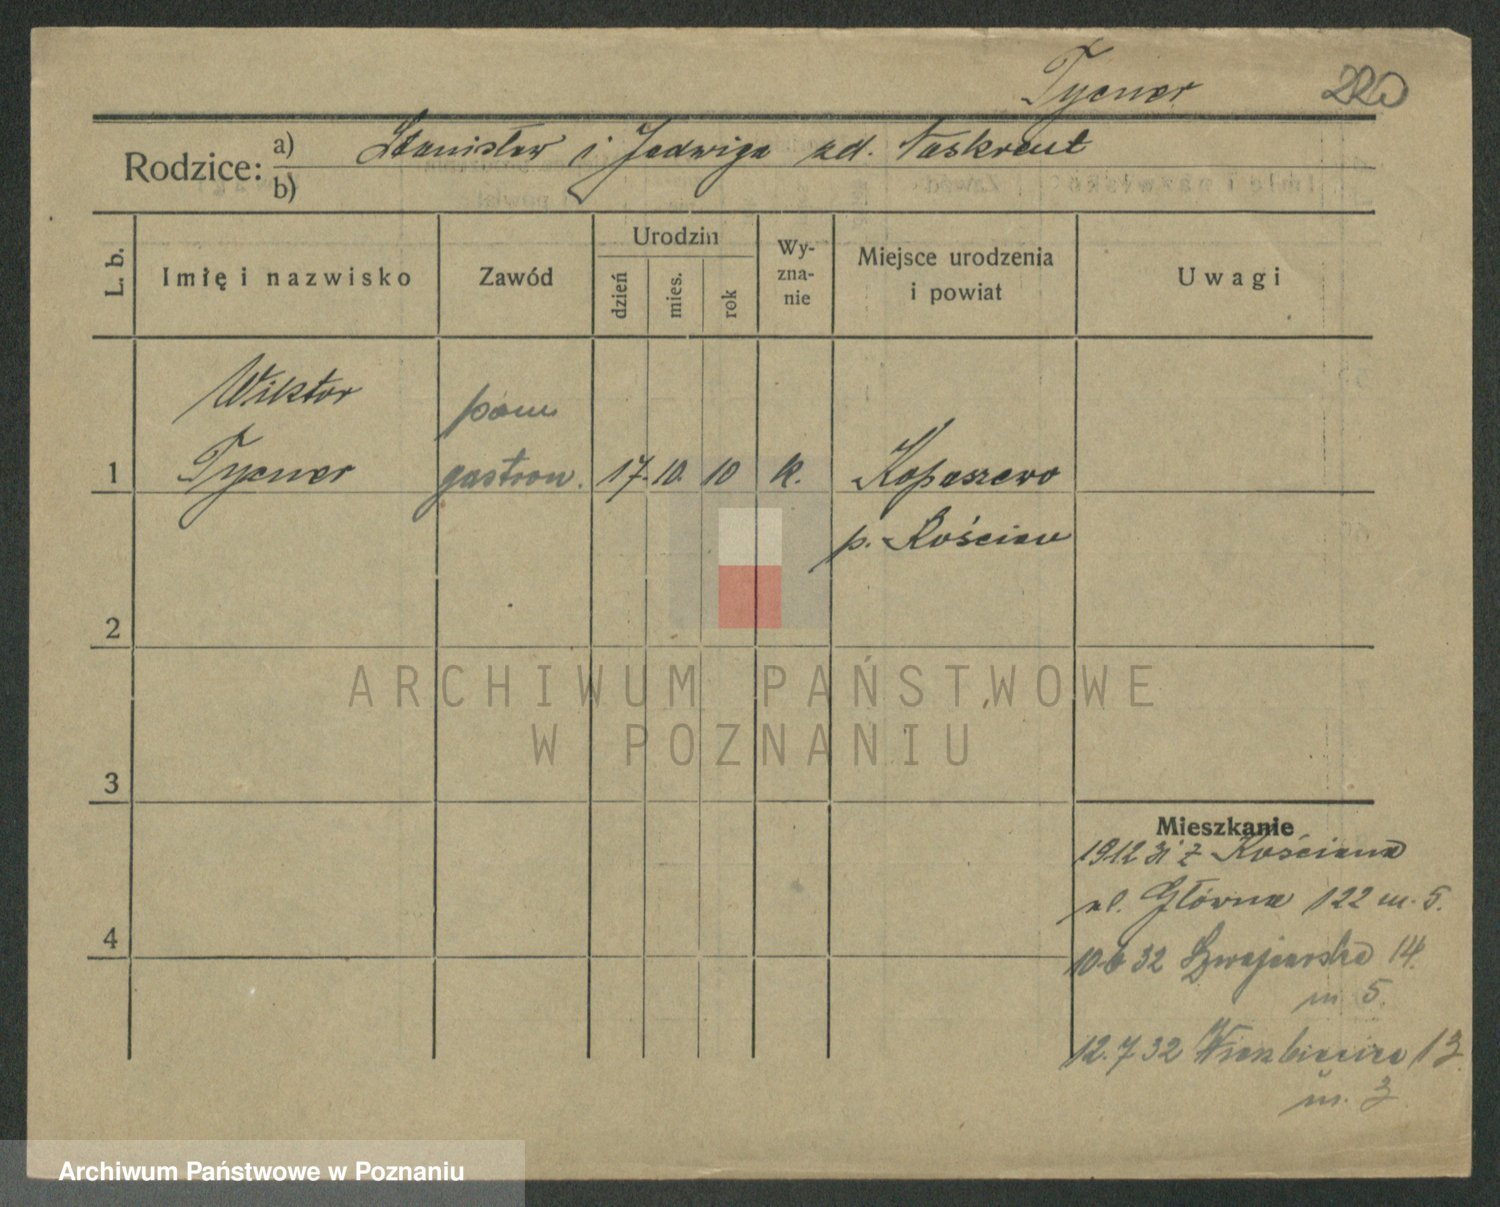 Tycner 220
Rodzice: a) Stanisław i Jadwiga zd. Taskrent
b)
L. b. Imię i nazwisko Zawód Urodzin dzień mies. rok Wy-zna-nie Miejsce urodzenia i powiat Uwagi
Wiktor pom
1 Tycner gastron. 17. 10. 10 k. Kopaszewo
p. Kościan
2
ARCHIWUM PAŃSTWOWE
W POZNANIU
3
Mieszkanie
1912 31 z Kościana
ul. Główna 122 m. 5.
4
10 6 32 Szwajcarska 14
m 5.
12. 7 32 Wierzbięcice 13
m. 3
Archiwum Państwowe w Poznaniu